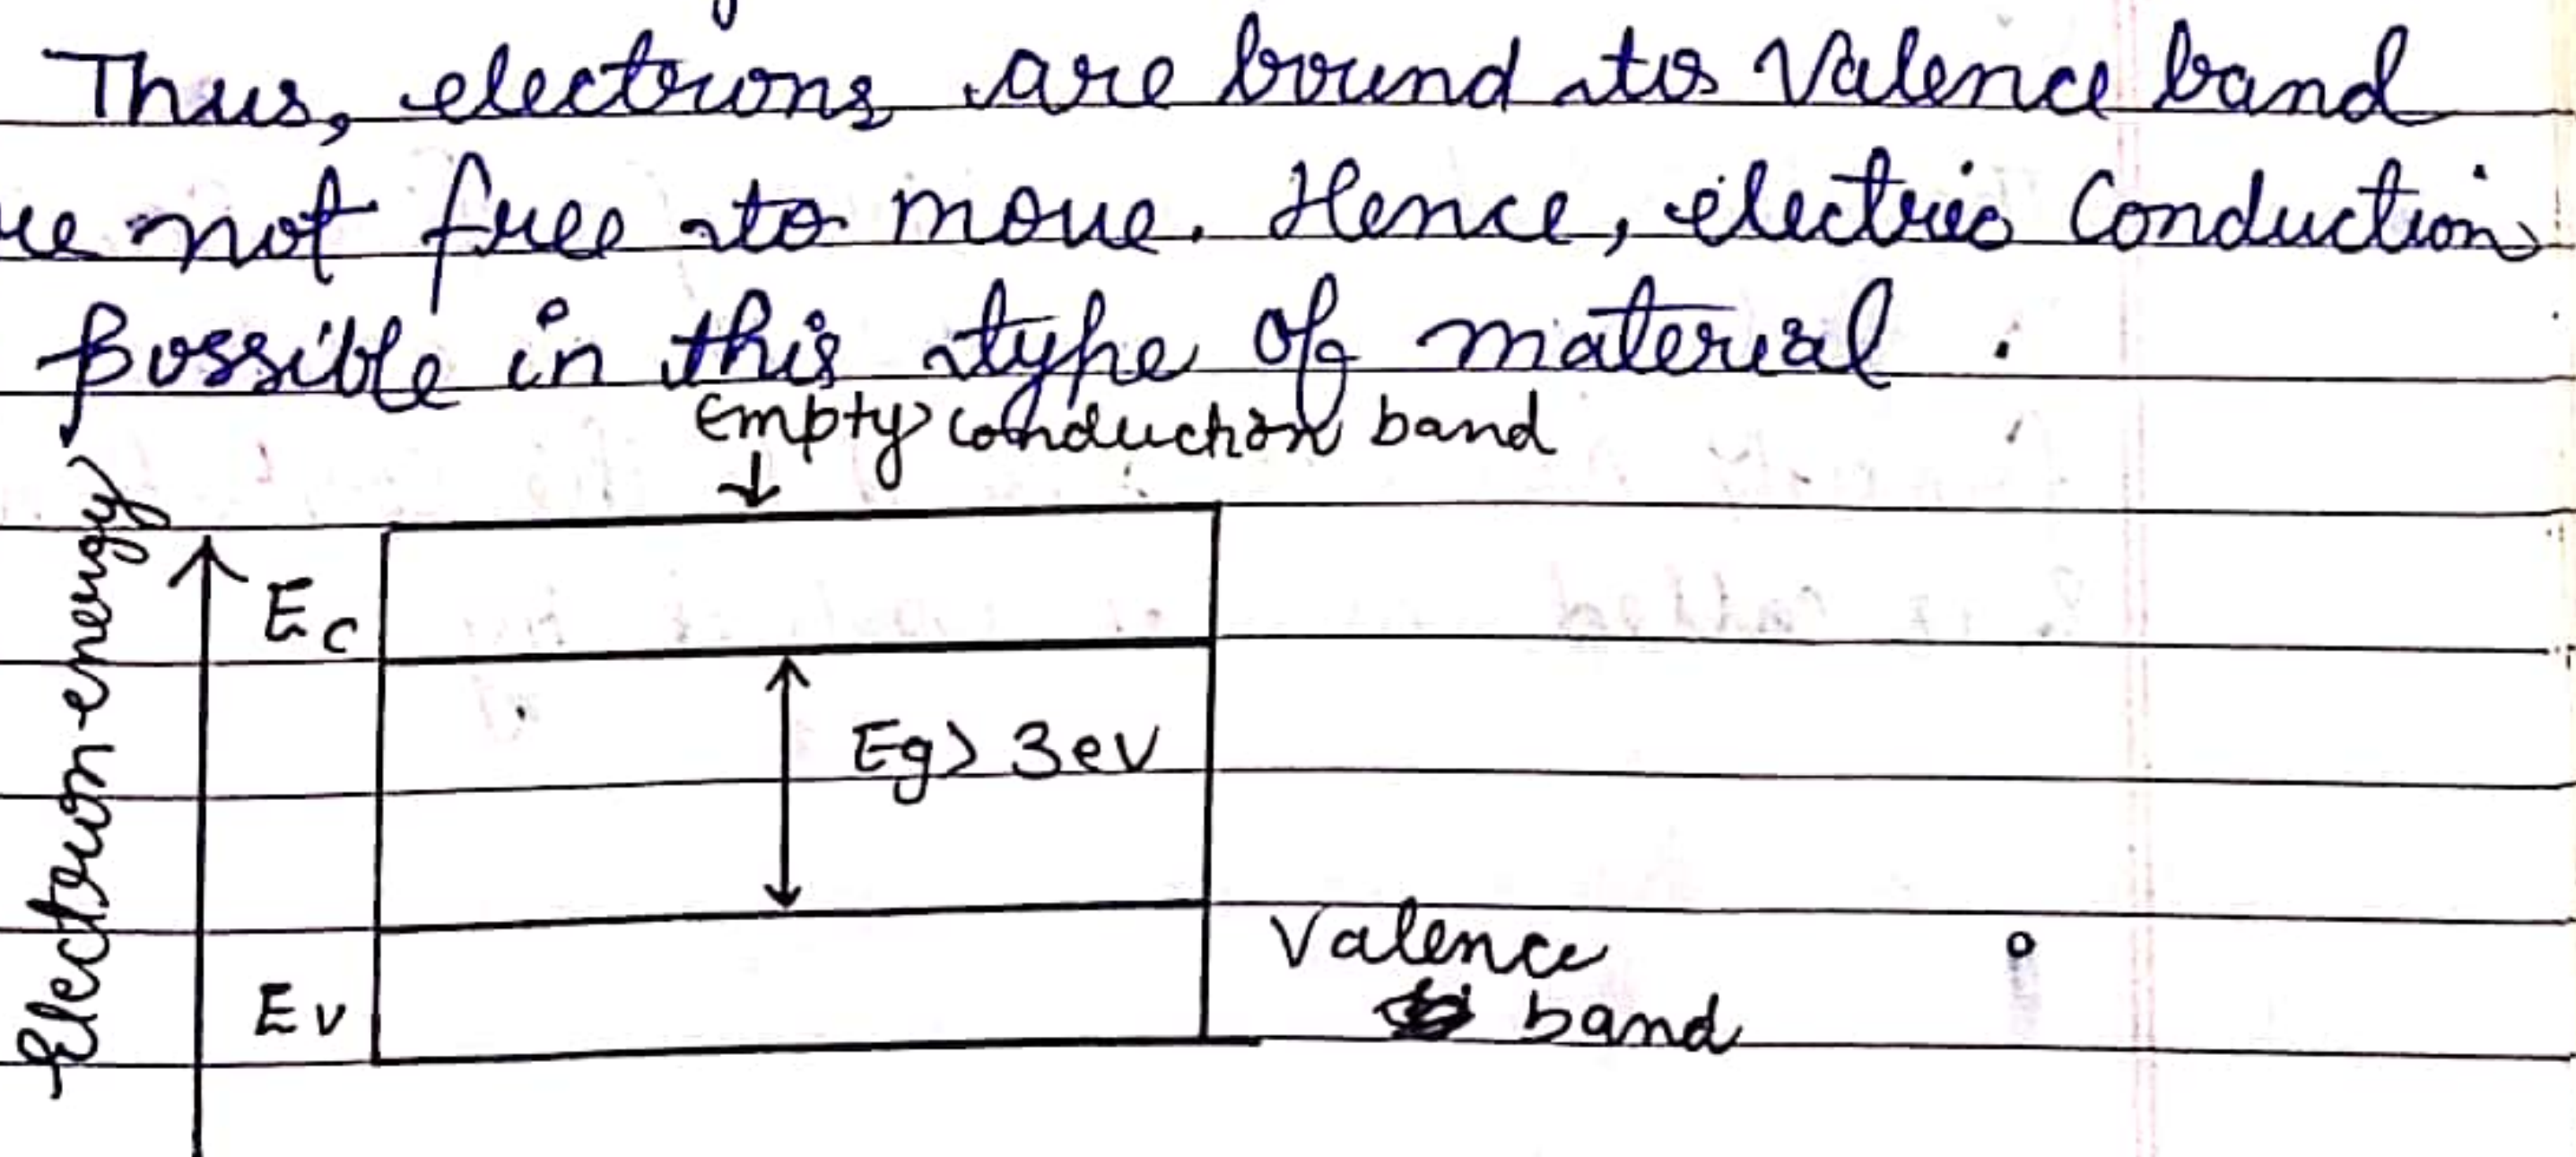 Thus, electrons are bound to Valence band
re not free to move. Hence, electric Conduction
possible in this type of material .
Empty conduction band
Electron energy
Ec
Eg> 3ev
Valence
Ev
band